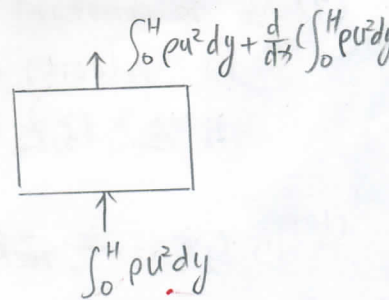 ∫₀ᴴ ρu²dy + d/dx (∫₀ᴴ ρu²dy
∫₀ᴴ ρu²dy